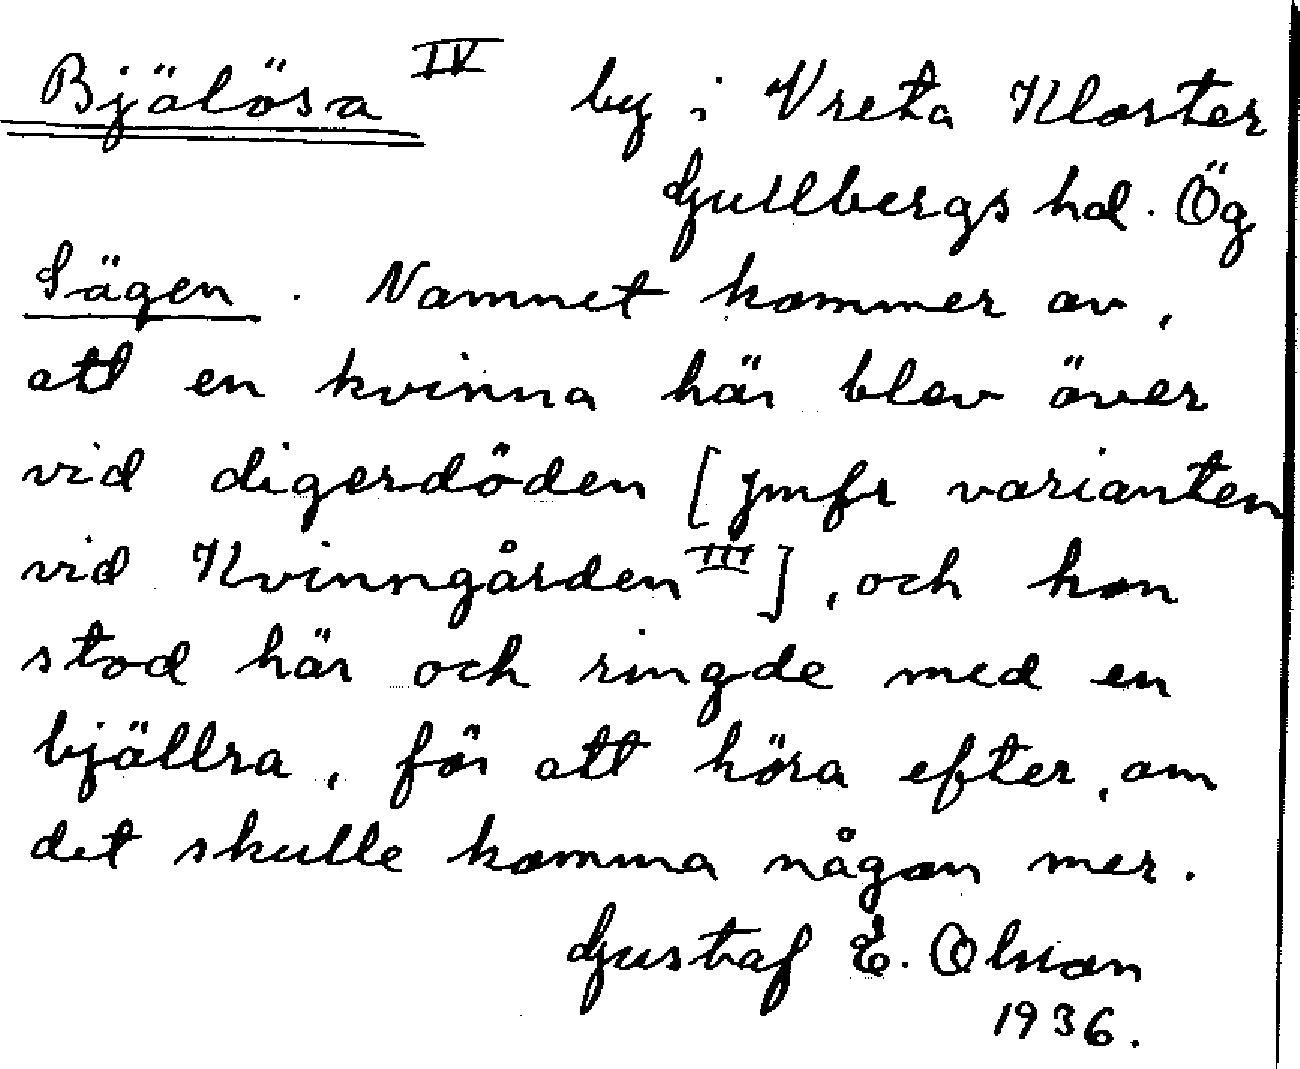 Bjälösa IV by i Vreta Kloster
Gullbergs hd. Ög
Sägen. Namnet kommer av,
att en kvinna här blev över
vid digerdöden [jmfr varianten
vid Kvinngården III], och hon
stod här och ringde med en
bjällra, för att höra efter, om
det skulle komma någon mer.
Gustaf E. Olsson
1936.